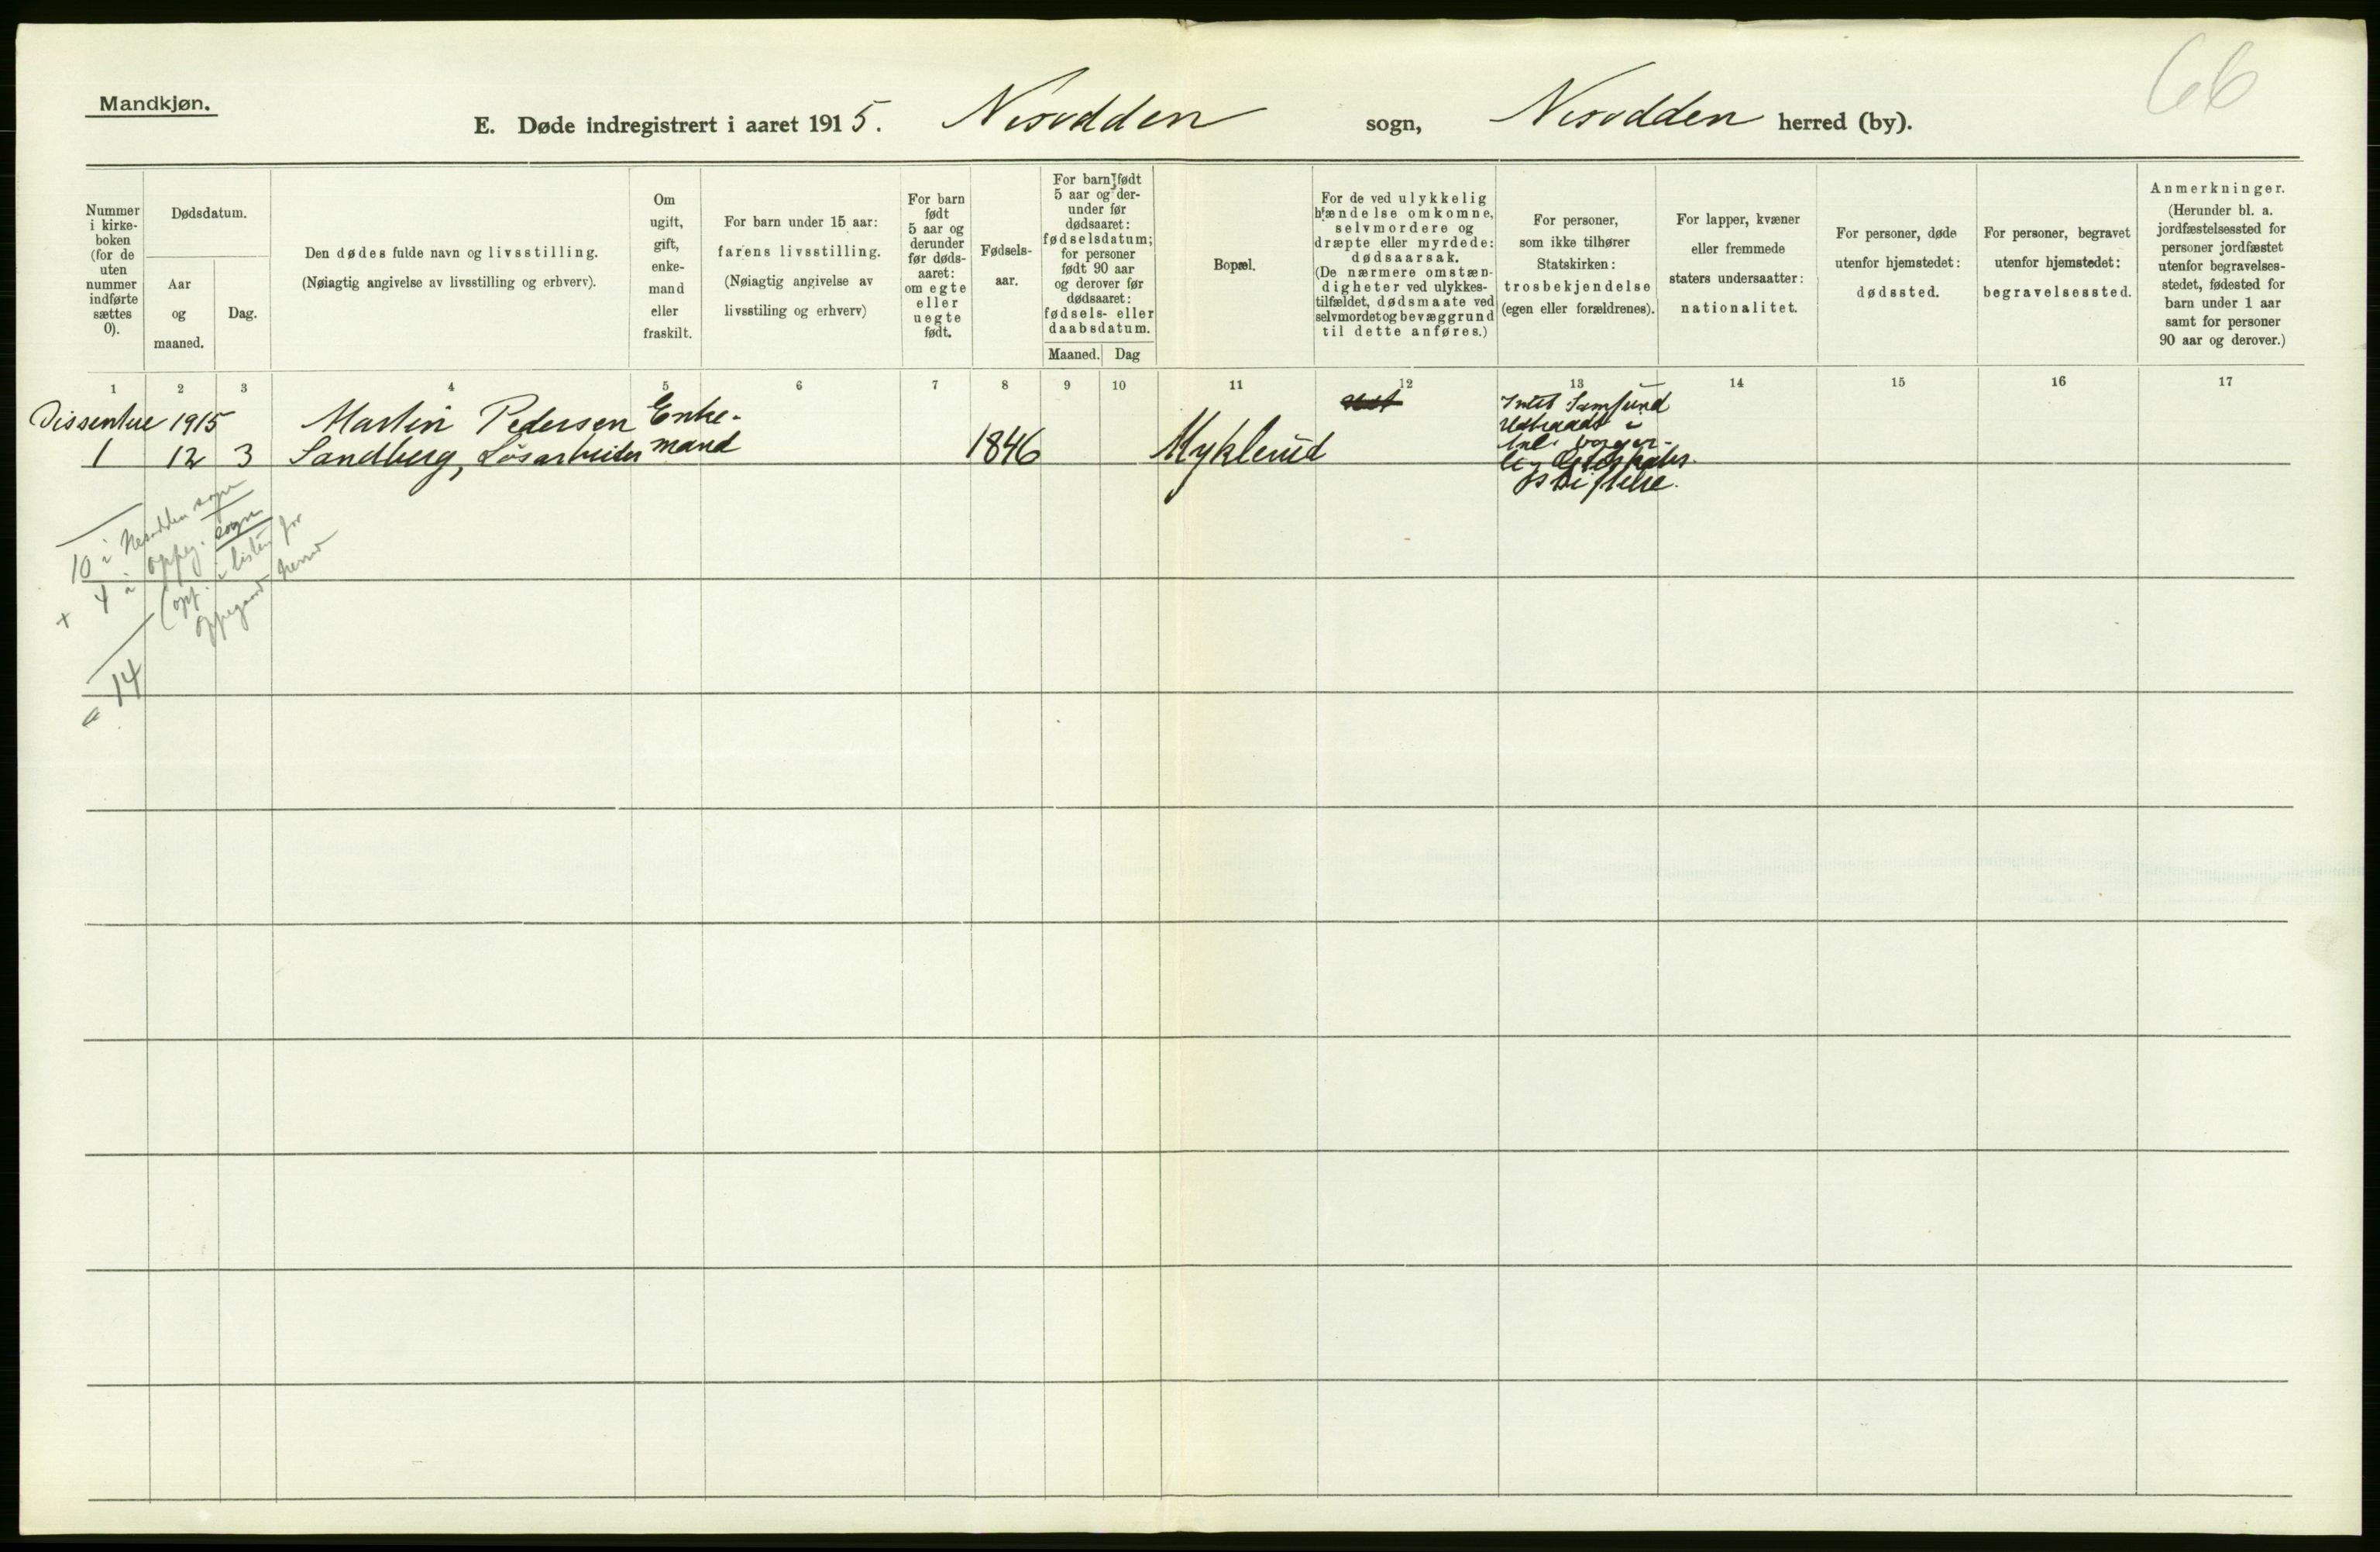 66
Mandkjøn.
E. Døde indregistrert i aaret 1915. Nesodden sogn, Nesodden herred (by).
Nummer
i kirke-
boken
(for de
uten
nummer
indførte
sættes
0).
Dødsdatum.
Aar
og
maaned.
Dag.
Den dødes fulde navn og livsstilling.
(Nøiagtig angivelse av livsstilling og erhverv).
Om
ugift,
gift,
enke-
mand
eller
fraskilt.
For barn under 15 aar:
farens livsstilling.
(Nøiagtig angivelse av
livsstiling og erhverv)
For barn
født
5 aar og
derunder
før døds-
aaret:
om egte
eller
uegte
født.
Fødsels-
aar.
For barn født
5 aar og der-
under før
dødsaaret:
fødselsdatum;
for personer
født 90 aar
og derover før
dødsaaret:
fødsels- eller
daabsdatum.
Maaned. Dag
Bopæl.
For de ved ulykkelig
hændelse omkomne,
selvmordere og
dræpte eller myrdede:
dødsaarsak.
(De nærmere omstæn-
digheter ved ulykkes-
tilfældet, dødsmaate ved
selvmordet og bevæggrund
til dette anføres.)
For personer,
som ikke tilhører
Statskirken:
trosbekjendelse
(egen eller forældrenes).
For lapper, kvæner
eller fremmede
staters undersaatter:
nationalitet.
For personer, døde
utenfor hjemstedet:
dødssted.
For personer, begravet
utenfor hjemstedet:
begravelsessted.
Anmerkninger.
(Herunder bl. a.
jordfæstelsessted for
personer jordfæstet
utenfor begravelses-
stedet, fødested for
barn under 1 aar
samt for personer
90 aar og derover.)
1 2 3 4 5 6 7 8 9 10 11 12 13 14 15 16 17
1915 Martin Pedersen Enke-
1 12 3 Sandberg, Løsarbeider mand 1846 Myklerud
Intet Samfund
10 i Nesodden sogn
+ 4 i oppeg. sogn
(opf. i listen for
Oppegaard herred
14